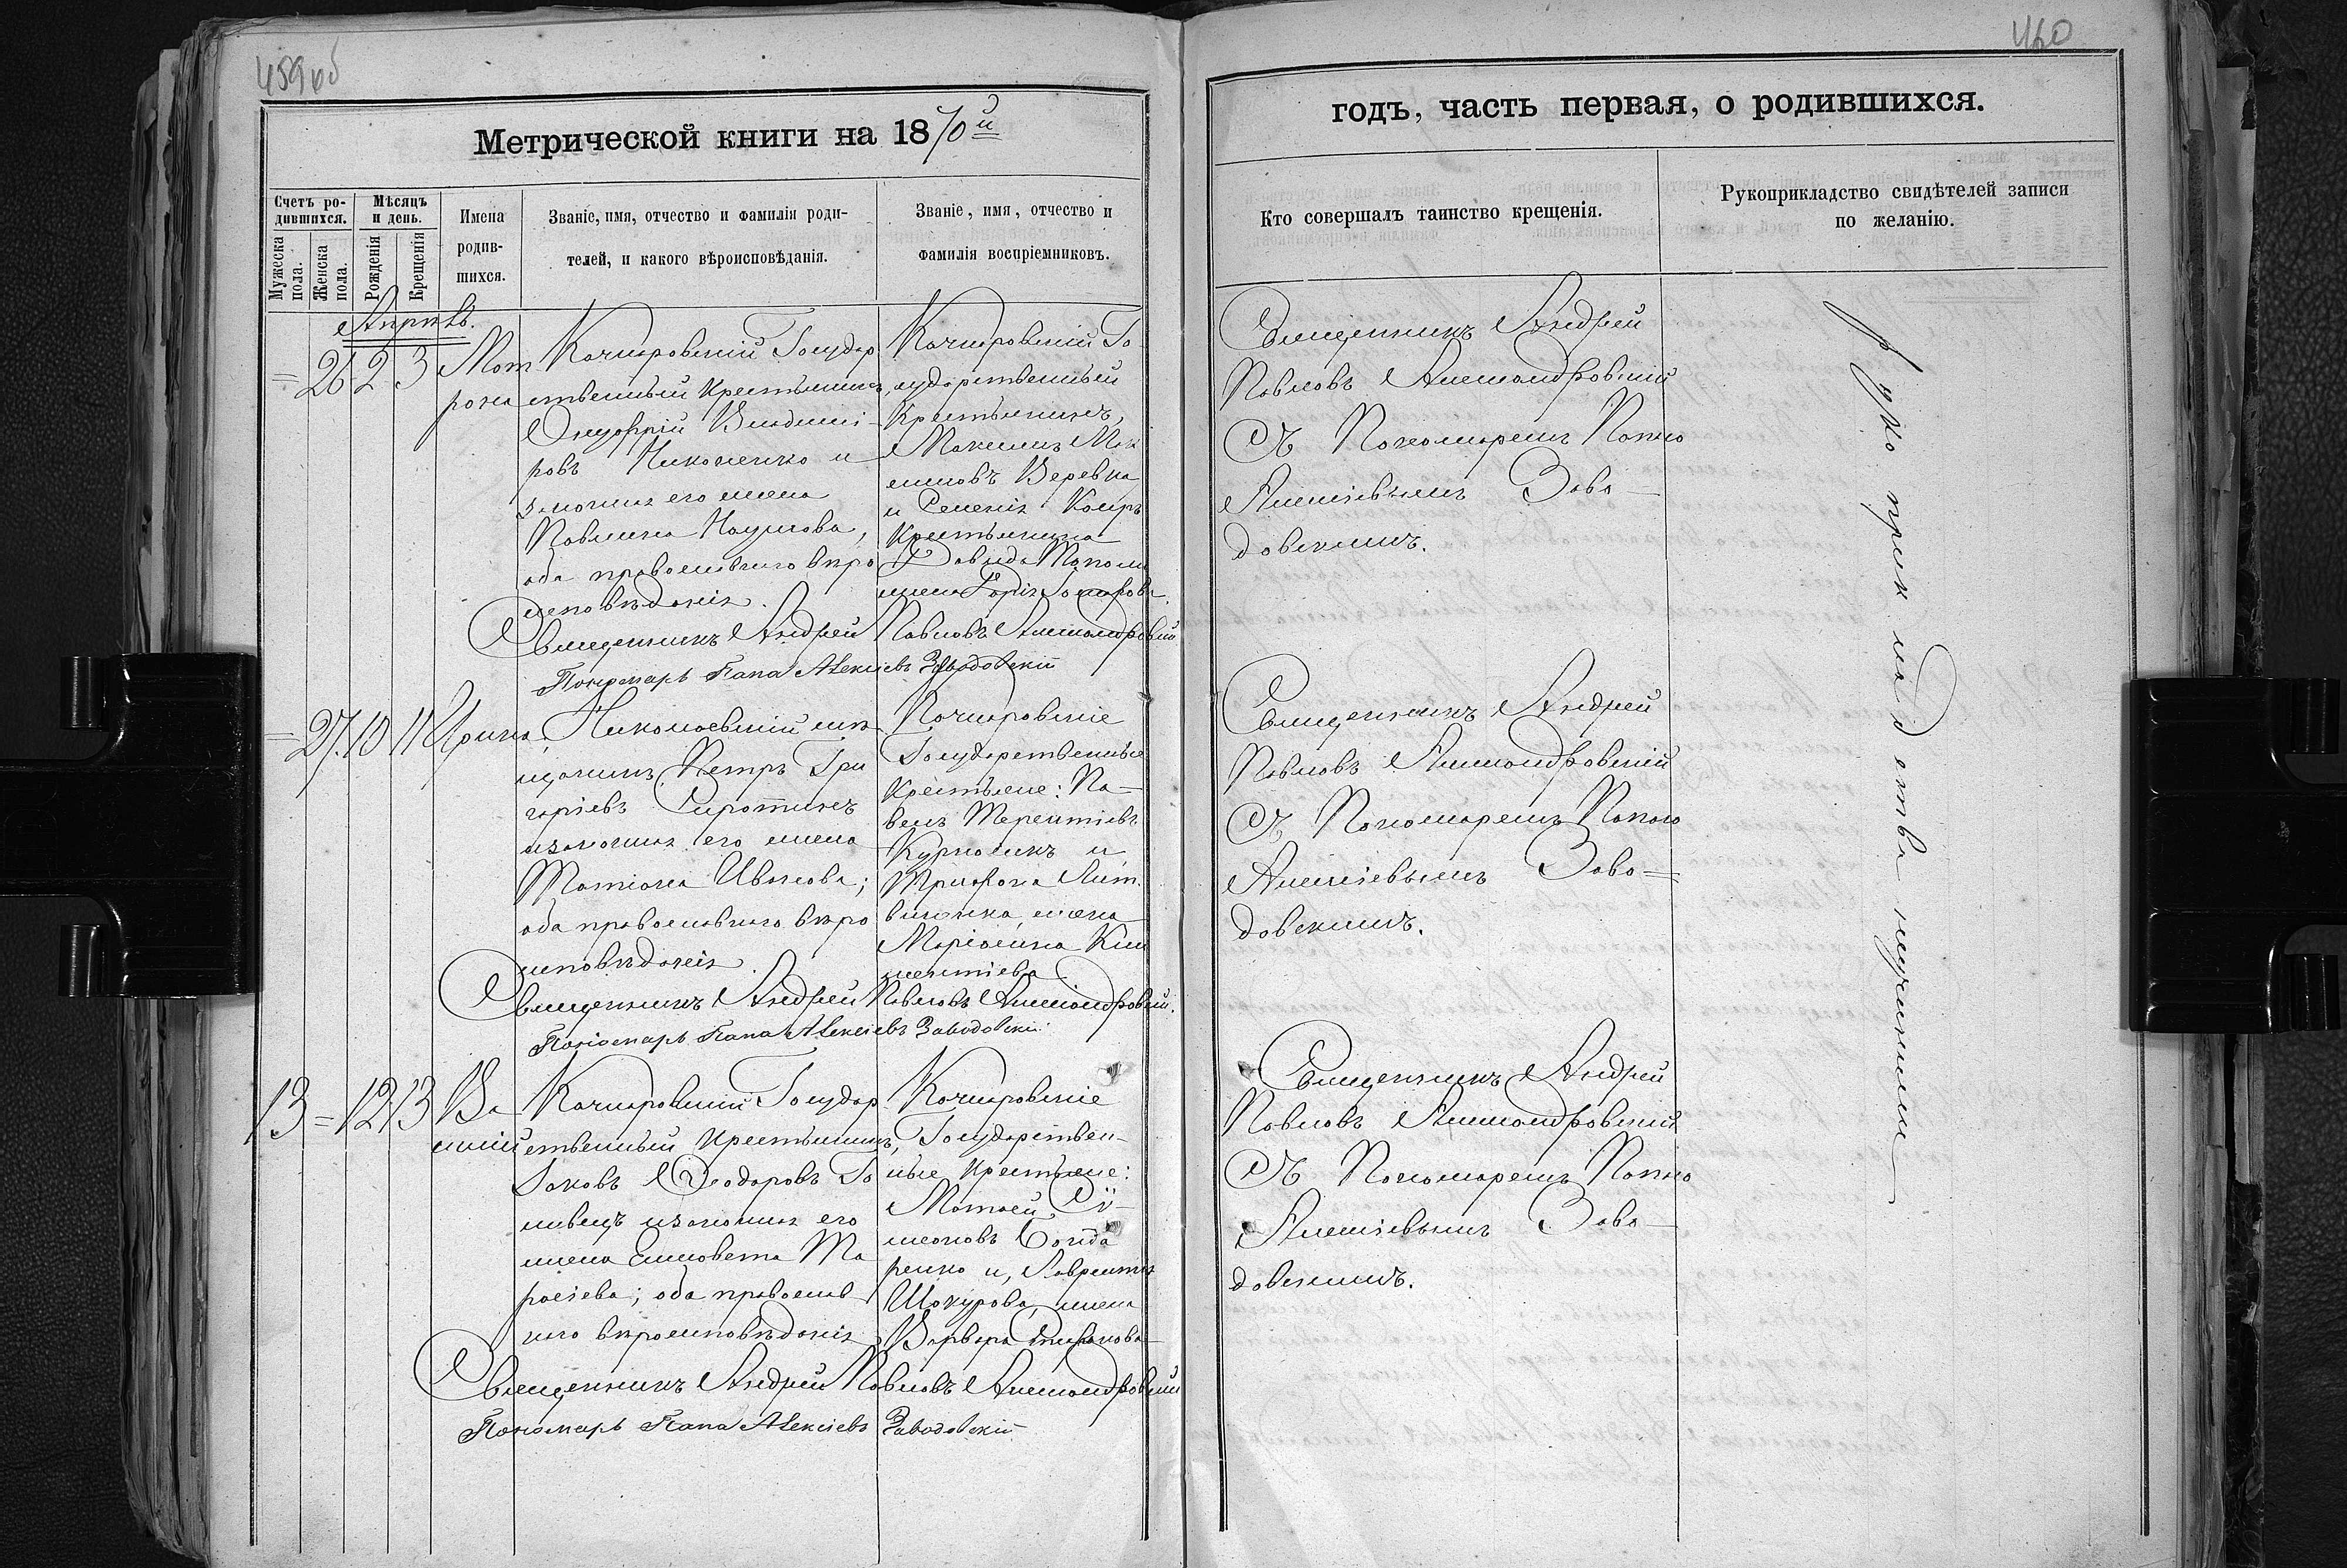 459 об
Метрической книги на 1870й
Счетъ ро-
дившихся.
Мѣсяцъ
и день.
Мужеска
пола.
Женска
пола.
Рожденія
Крещенія
Имена
родив-
шихся.
Званіе, имя, отчество и фамилія роди-
телей, и какого вѣроисповѣданія.
Званіе, имя, отчество и
фамилія воспріемниковъ.
Апрѣль.
= 26 2 3
Мот
рона
Качкаровскій Государ
ственный крестьянинъ,
Онуфрій
ровъ и
законная его жена
Павлина Наумова,
оба православнаго вѣро
исповѣданія.
Качкаровскій Го-
сударственный
Крестьянинъ,
Максимъ Мак
симовъ Веревка
и
Крестьянина
Давида
жена
Священникъ Андрей Павловъ Александровскій
Пономарь Папа Алексіевъ Заводовскій
= 27. 10 11
Ирина
Николаевскій мѣ
щанинъ, Петръ Гри
горіевъ Сиротинъ
изаконная его жена
Матрона Иванова;
оба православнаго вѣро
исповѣданія.
Качкаровскіе
Государственные
Крестьяне: Па-
велъ Терентіевъ
и
Трифона Лит.
виненка, жена
Маріамна Кли
ментіева
Священникъ Андрей Павловъ Александровскій.
Пономарь Папа Алексіевъ Заводовскій
13 = 12 13
Ва
силій
Качкаровскій Государ
ственный Крестьянинъ,
Яковъ Ѳеодоровъ Го
ливецъ изаконная его
жена Елисовета Та
расіева; оба православ
наго вѣроисповѣданія
Качкаровскіе
Государствен-
ные Крестьяне:
Матѳей Сѵ-
меоновъ Бонда
ренко и, Лаврентія
Шокурова, жена
Варвара
Священникъ Андрей Павловъ Александровскій
Пономарь Папа Алексіевъ Заводовскій
460
годъ, часть первая, о родившихся.
Кто совершалъ таинство крещенія.
Рукоприкладство свидѣтелей записи
по желанію.
Священникъ Андрей
Павловъ Александровскій
Съ Пономаремъ Папою
Алексіевымъ Заво-
довскимъ.
Священникъ Андрей
Павловъ Александровскій
Съ Пономаремъ Папою
Алексіевымъ Заво=
довскимъ.
Священникъ Андрей
Павловъ Александровскій
Съ Пономаремъ Папою
Алексіевымъ Заво-
довскимъ.
рукоприкладства неучинили